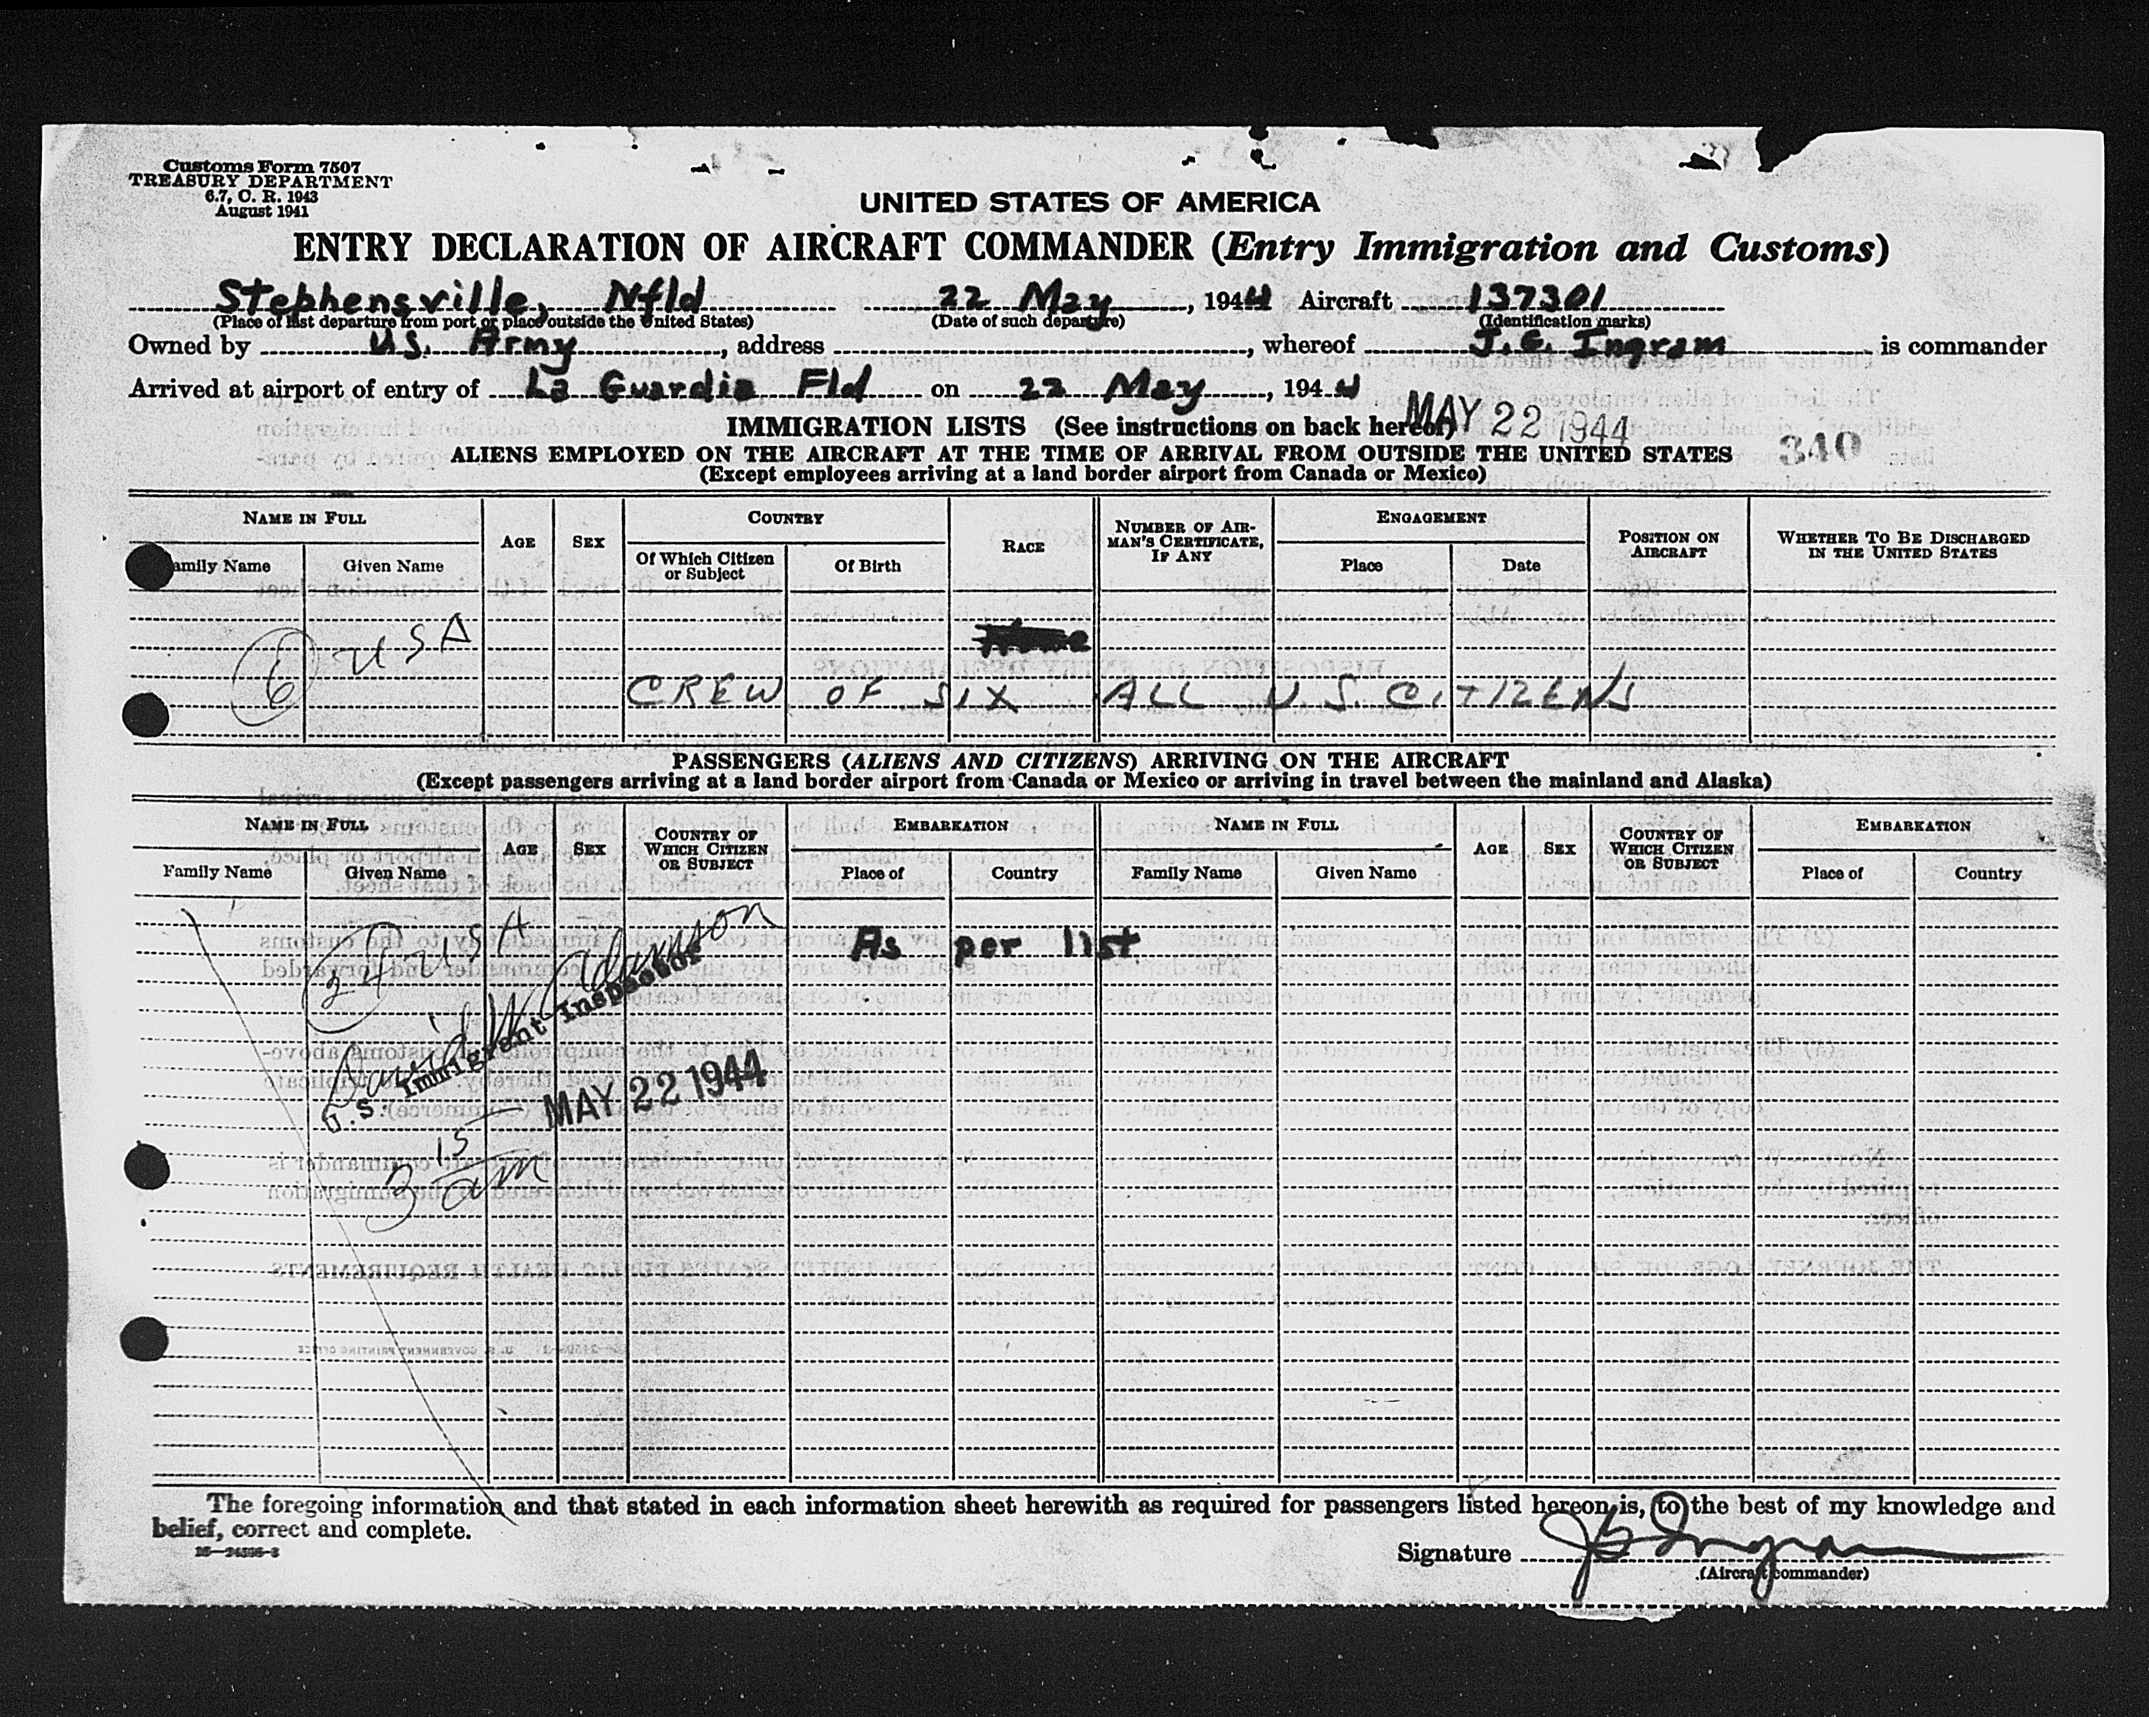 Customs Form 7507
TREASURY DEPARTMENT
6.7, C. R. 1943
August 1941
UNITED STATES OF AMERICA
ENTRY DECLARATION OF AIRCRAFT COMMANDER (Entry Immigration and Customs)
Stephensville, Nfld 22 May, 1944 Aircraft 137301
(Place of last departure from port or place outside the United States) (Date of such departure) (Identification marks)
Owned by U.S. Army, address , whereof J. E. Ingram is commander
Arrived at airport of entry of La Guardia Fld on 22 May, 1944
IMMIGRATION LISTS (See instructions on back hereof) MAY 22 1944
ALIENS EMPLOYED ON THE AIRCRAFT AT THE TIME OF ARRIVAL FROM OUTSIDE THE UNITED STATES 340
(Except employees arriving at a land border airport from Canada or Mexico)
NAME IN FULL AGE SEX COUNTRY RACE NUMBER OF AIRMAN'S CERTIFICATE, IF ANY ENGAGEMENT POSITION ON AIRCRAFT WHETHER TO BE DISCHARGED IN THE UNITED STATES
Family Name Given Name Of Which Citizen or Subject Of Birth Place Date
6 USA
CREW OF SIX ALL U S. CITIZENS
PASSENGERS (ALIENS AND CITIZENS) ARRIVING ON THE AIRCRAFT
(Except passengers arriving at a land border airport from Canada or Mexico or arriving in travel between the mainland and Alaska)
NAME IN FULL AGE SEX COUNTRY OF WHICH CITIZEN OR SUBJECT EMBARKATION NAME IN FULL AGE SEX COUNTRY OF WHICH CITIZEN OR SUBJECT EMBARKATION
Family Name Given Name Place of Country Family Name Given Name Place of Country
24 USA As per list
David W Adamson
U.S. Immigrant Inspector
MAY 22 1944
3 15 am
The foregoing information and that stated in each information sheet herewith as required for passengers listed hereon is, to the best of my knowledge and
belief, correct and complete.
Signature J E Ingram
(Aircraft commander)